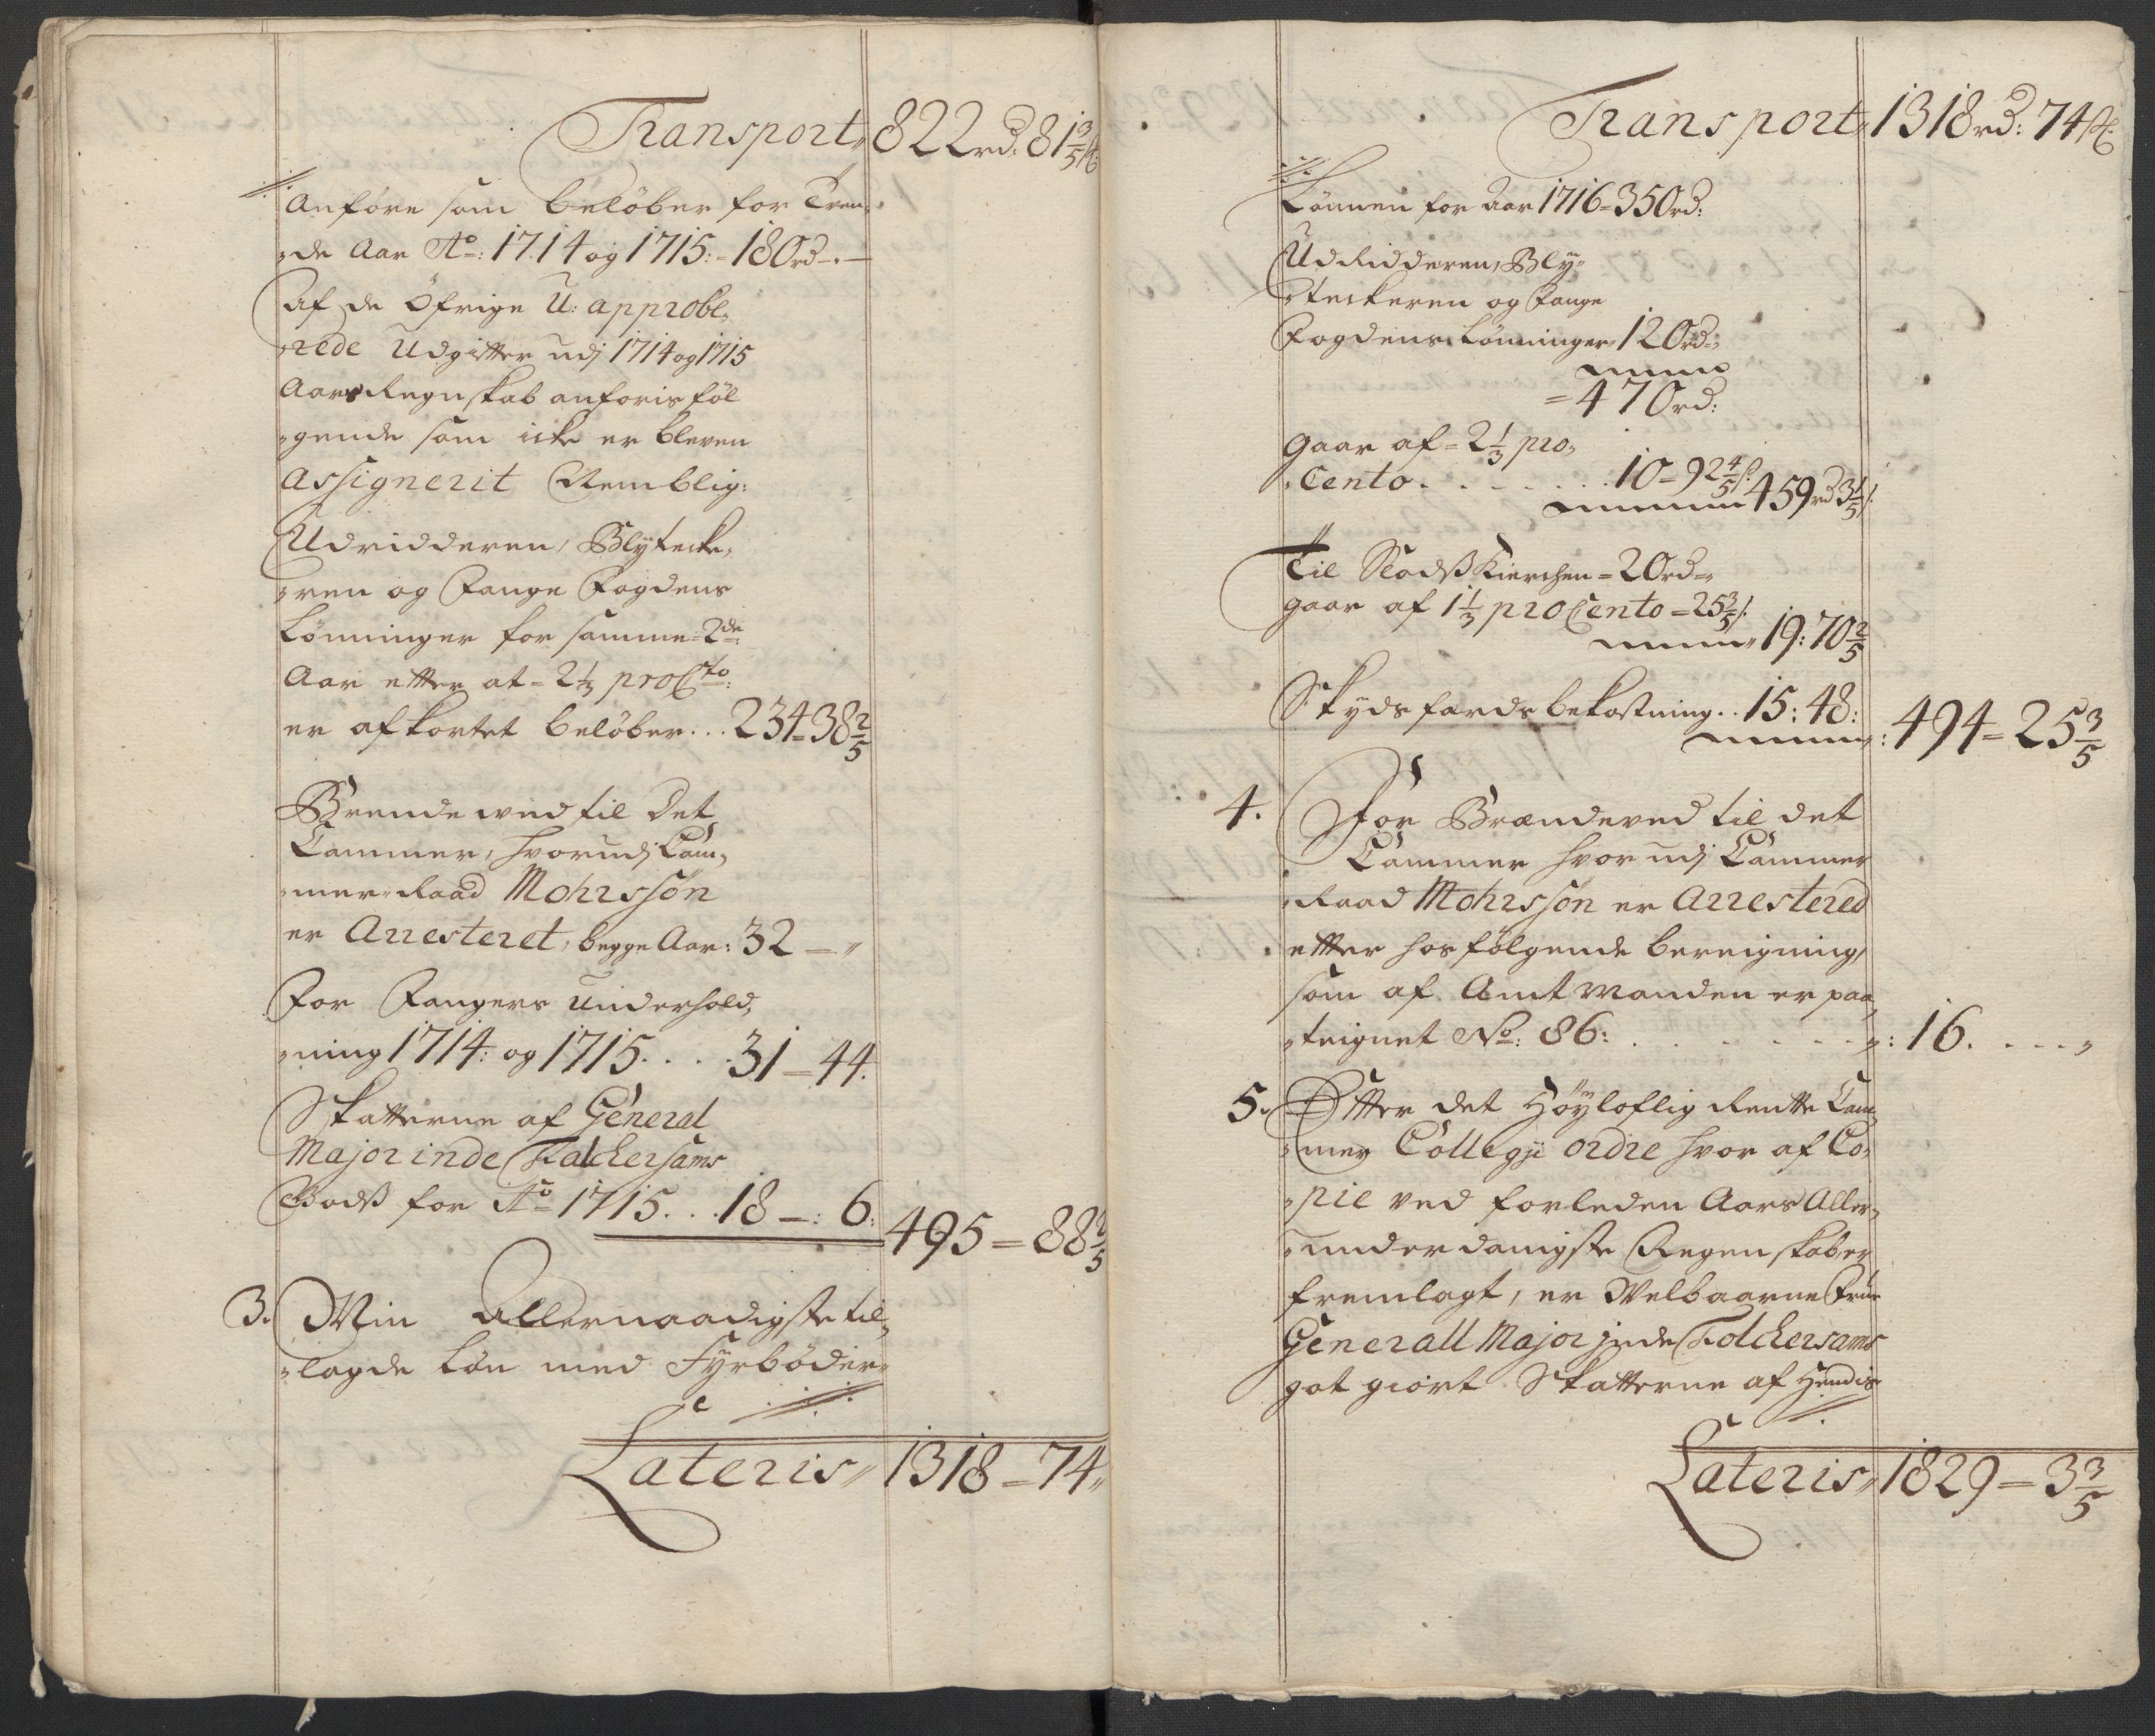 Transport,, 822 rd: 81 3/5 ß:
Anføre som beløber for Tven,
,,de Aar Ao: 1714 og 1715: = 180 rd -. —
Af de Öfrige U: approbe,
,,rede Udgifter udj 1714 og 1715
Aars Regnskab anføris føl
,,gende som icke er bleven
Assignerit Nemblig:
Udridderen, Blytecke,
,,ren og Fange Fogdens
Lønninger for samme = 2de
Aar etter at = 2 1/3 proCto:
er afkortet beløber... 234 = 38 2/5
Brende wed til Det
Cammer, hvorudj Cam,
,,mer-Raad Mohrssøn
er Arresteret, begge Aar: 32 — ,,
For Fangers Underhold,
,,ning 1714: og 1715.... 31 — 44.
Skatterne af General
Major inde Falchersams
Godß for Ao 1715... 18 —: 6: 495 = 88 2/5
3. Min Allernaadigste til,
,,lagde Løn med Fyrbøder,
Lateris,, 1318 = 74,,
Transport,, 1318 rd: 74 ß:
Lønnen for Aar 1716 = 350 rd:
UdRidderen, Bly,,
,,teckeren og Fange
Fogdens Lønninger, 120 rd:
= 470 rd:
gaar af = 2 1/3 pro,
,,Cento....... 10 = 92 4/5 ß: 459 rd 3 1/5 ß.
Til Slodß Kierchen = 20 rd =,
gaar af 1 1/3 proCento = 25 3/5 ß.
19: 70 2/5
Skydsfærds bekostning.. 15: 48: 494 = 25 3/5
4. For Brændeved til det
Cammer hvor udj Cammer
,,Raad Mohrssøn er Arrestered
etter hosfølgende bereigning,
som af Amtmanden er paa,
,,teignet No: 86: ....... ,,: 16. ...,,
5. Etter det Höyloflig Rentte Cam,
,,mer Collegij ordre hvor af Co,
,,pie ved forleden Aars Aller,
,,underdanigste Regenskaber
fremlagt, er Welbaarne Frue
Generall Major jnde Folchersams
got giort Skatterne af Hendis
Lateris,, 1829 = 3 3/5